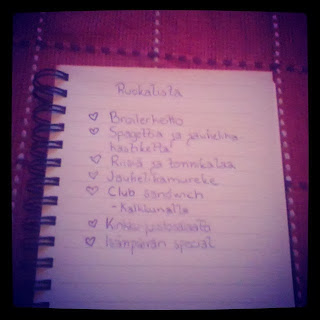 Ruokalista
Broilerkeitto
Spagettia ja jauheliha-
kastiketta
Riisiä ja tonnikalaa
Jauhelihamureke
Club sandwich
- Kalkkunalla
Kinkku-pastasalaatti
Isänpäivän special